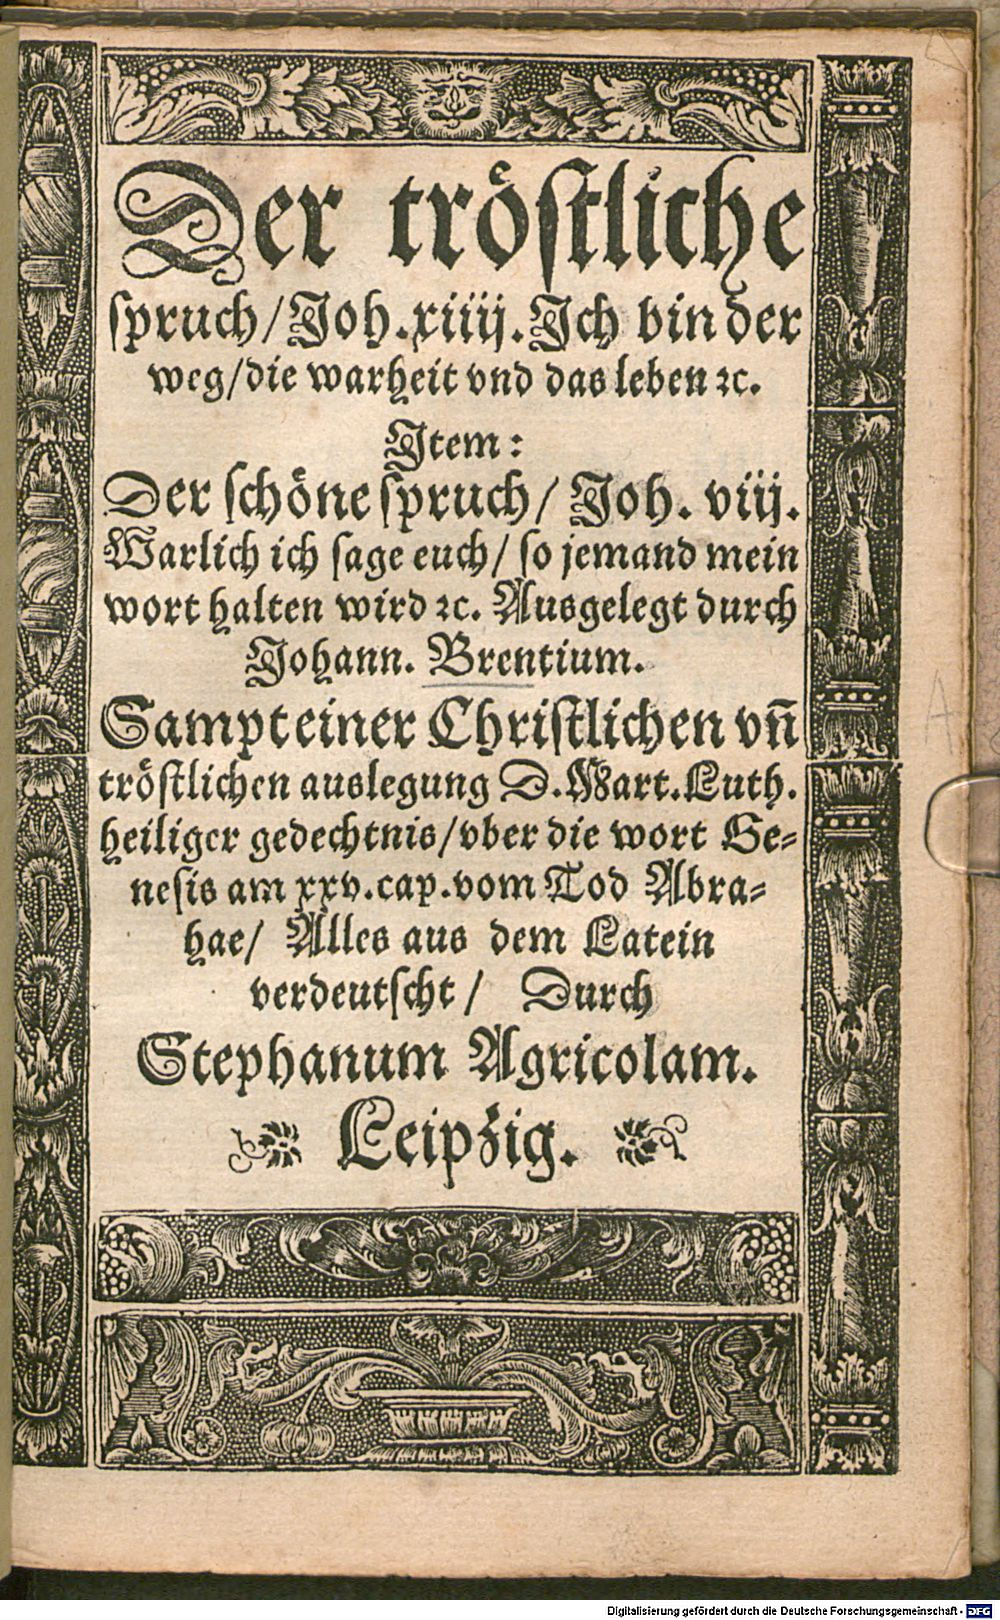 Der tröſtliche
ſpruch / Joh. xiiij. Ich bin der
weg / die warheit vnd das leben ꝛc.
Item:
Der ſchöne ſpruch / Joh. viij.
Warlich ich ſage euch / ſo jemand mein
wort halten wird ꝛc. Ausgelegt durch
Johann. Brentium.
Sampt einer Chriſtlichen vn̄
tröſtlichen auslegung D. Mart. Luth.
heiliger gedechtnis / vber die wort Ge⸗
neſis am xxv. cap. vom Tod Abra⸗
hae / Alles aus dem Latein
verdeutſcht / Durch
Stephanum Agricolam.
Leipzig.
Digitalisierung gefördert durch die Deutsche Forschungsgemeinschaft - DFG